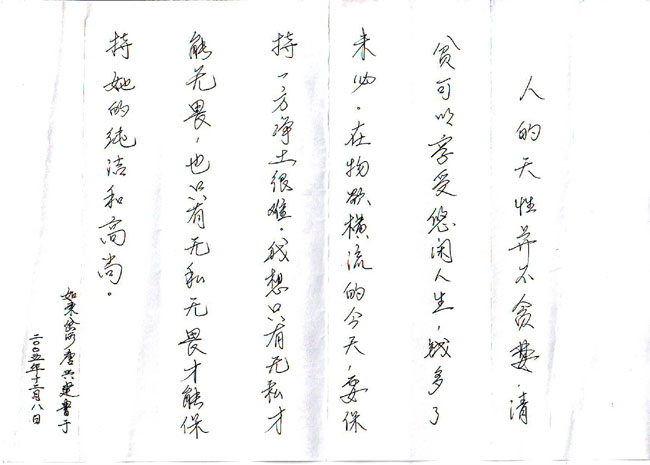 人的天性并不贪婪,清
贫可以享受悠闲人生,钱多了
未必。在物欲横流的今天,要保
持一方净土很难。我想只有无私才
能无畏,也只有无私无畏才能保
持她的纯洁和高尚。
唐兴建书于
二〇〇五年十二月八日